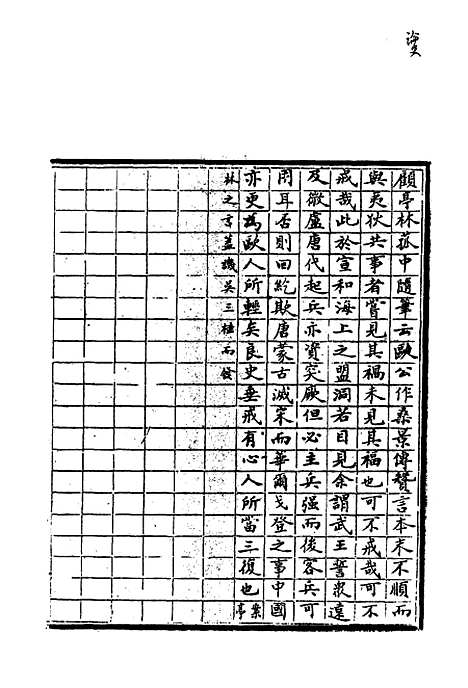 顧亭林菰中隨筆云歐公作桑景傳贊言本末不順而
與夷狄共事者嘗見其禍未見其福也可不戒哉可不
戒哉此於宣和海上之盟洞若目見余謂武王誓衆遠
及微盧唐代起兵亦資突厥但必主兵强而後客兵可
用耳否則回紇欺唐蒙古滅宋而華爾戈登之事中國
亦更為歐人所輕矣良史垂戒有心人所當三復也案亭
林之言蓋譏吳三桂而發